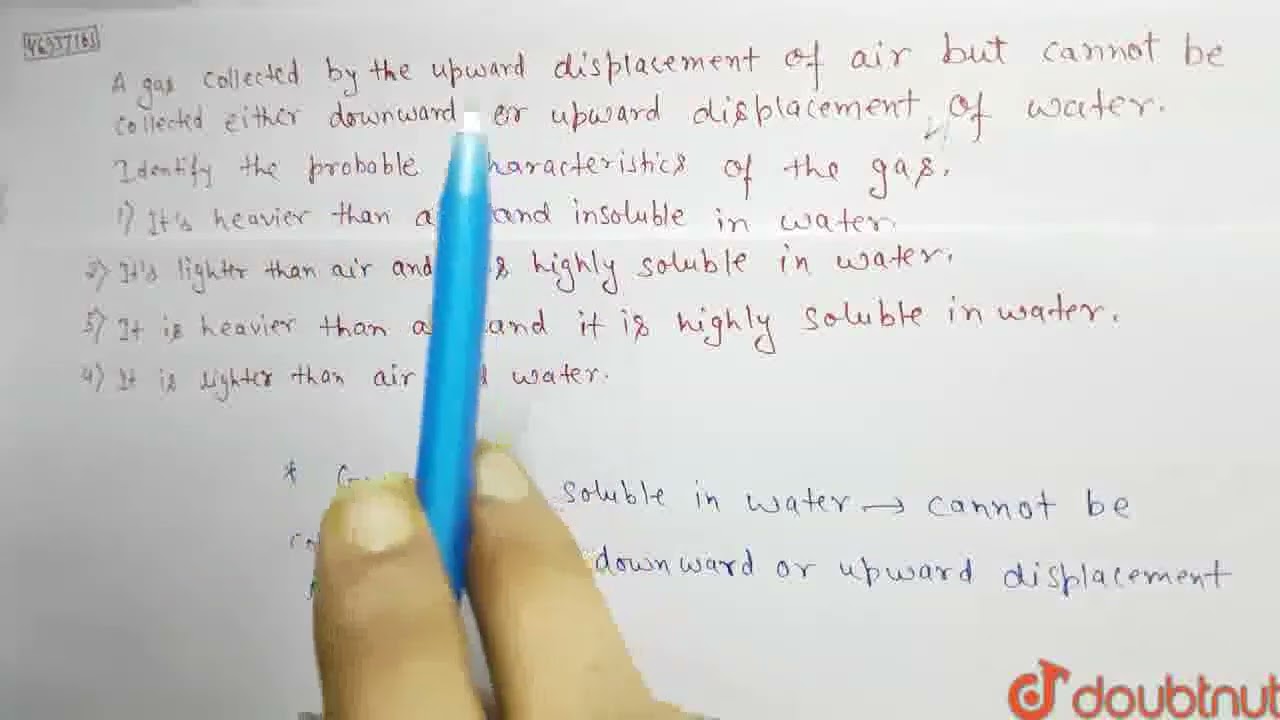 46937163
A gas collected by the upward displacement of air but cannot be
collected either downward or upward displacement of water.
Identify the probable characteristics of the gas.
1) It's heavier than and insoluble in water.
2) It's lighter than air and highly soluble in water.
3) It is heavier than and it is highly soluble in water.
4) It is lighter than air water.
* soluble in water → cannot be
downward or upward displacement
doubtnut